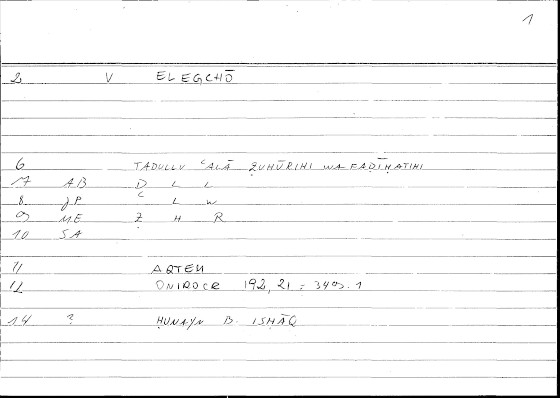 1
2 V ELEGCHŌ
6 TADULLU ʿALĀ ẒUHŪRIHI WA FAḌĪḤATIHI
17 AB D L L
8 JP ʿ L W
9 ME Ẓ H R
10 SA
11 ARTEM
12 ONIROCR 192, 21 = 349. 1
14 ? ḤUNAYN B. ISḤĀQ